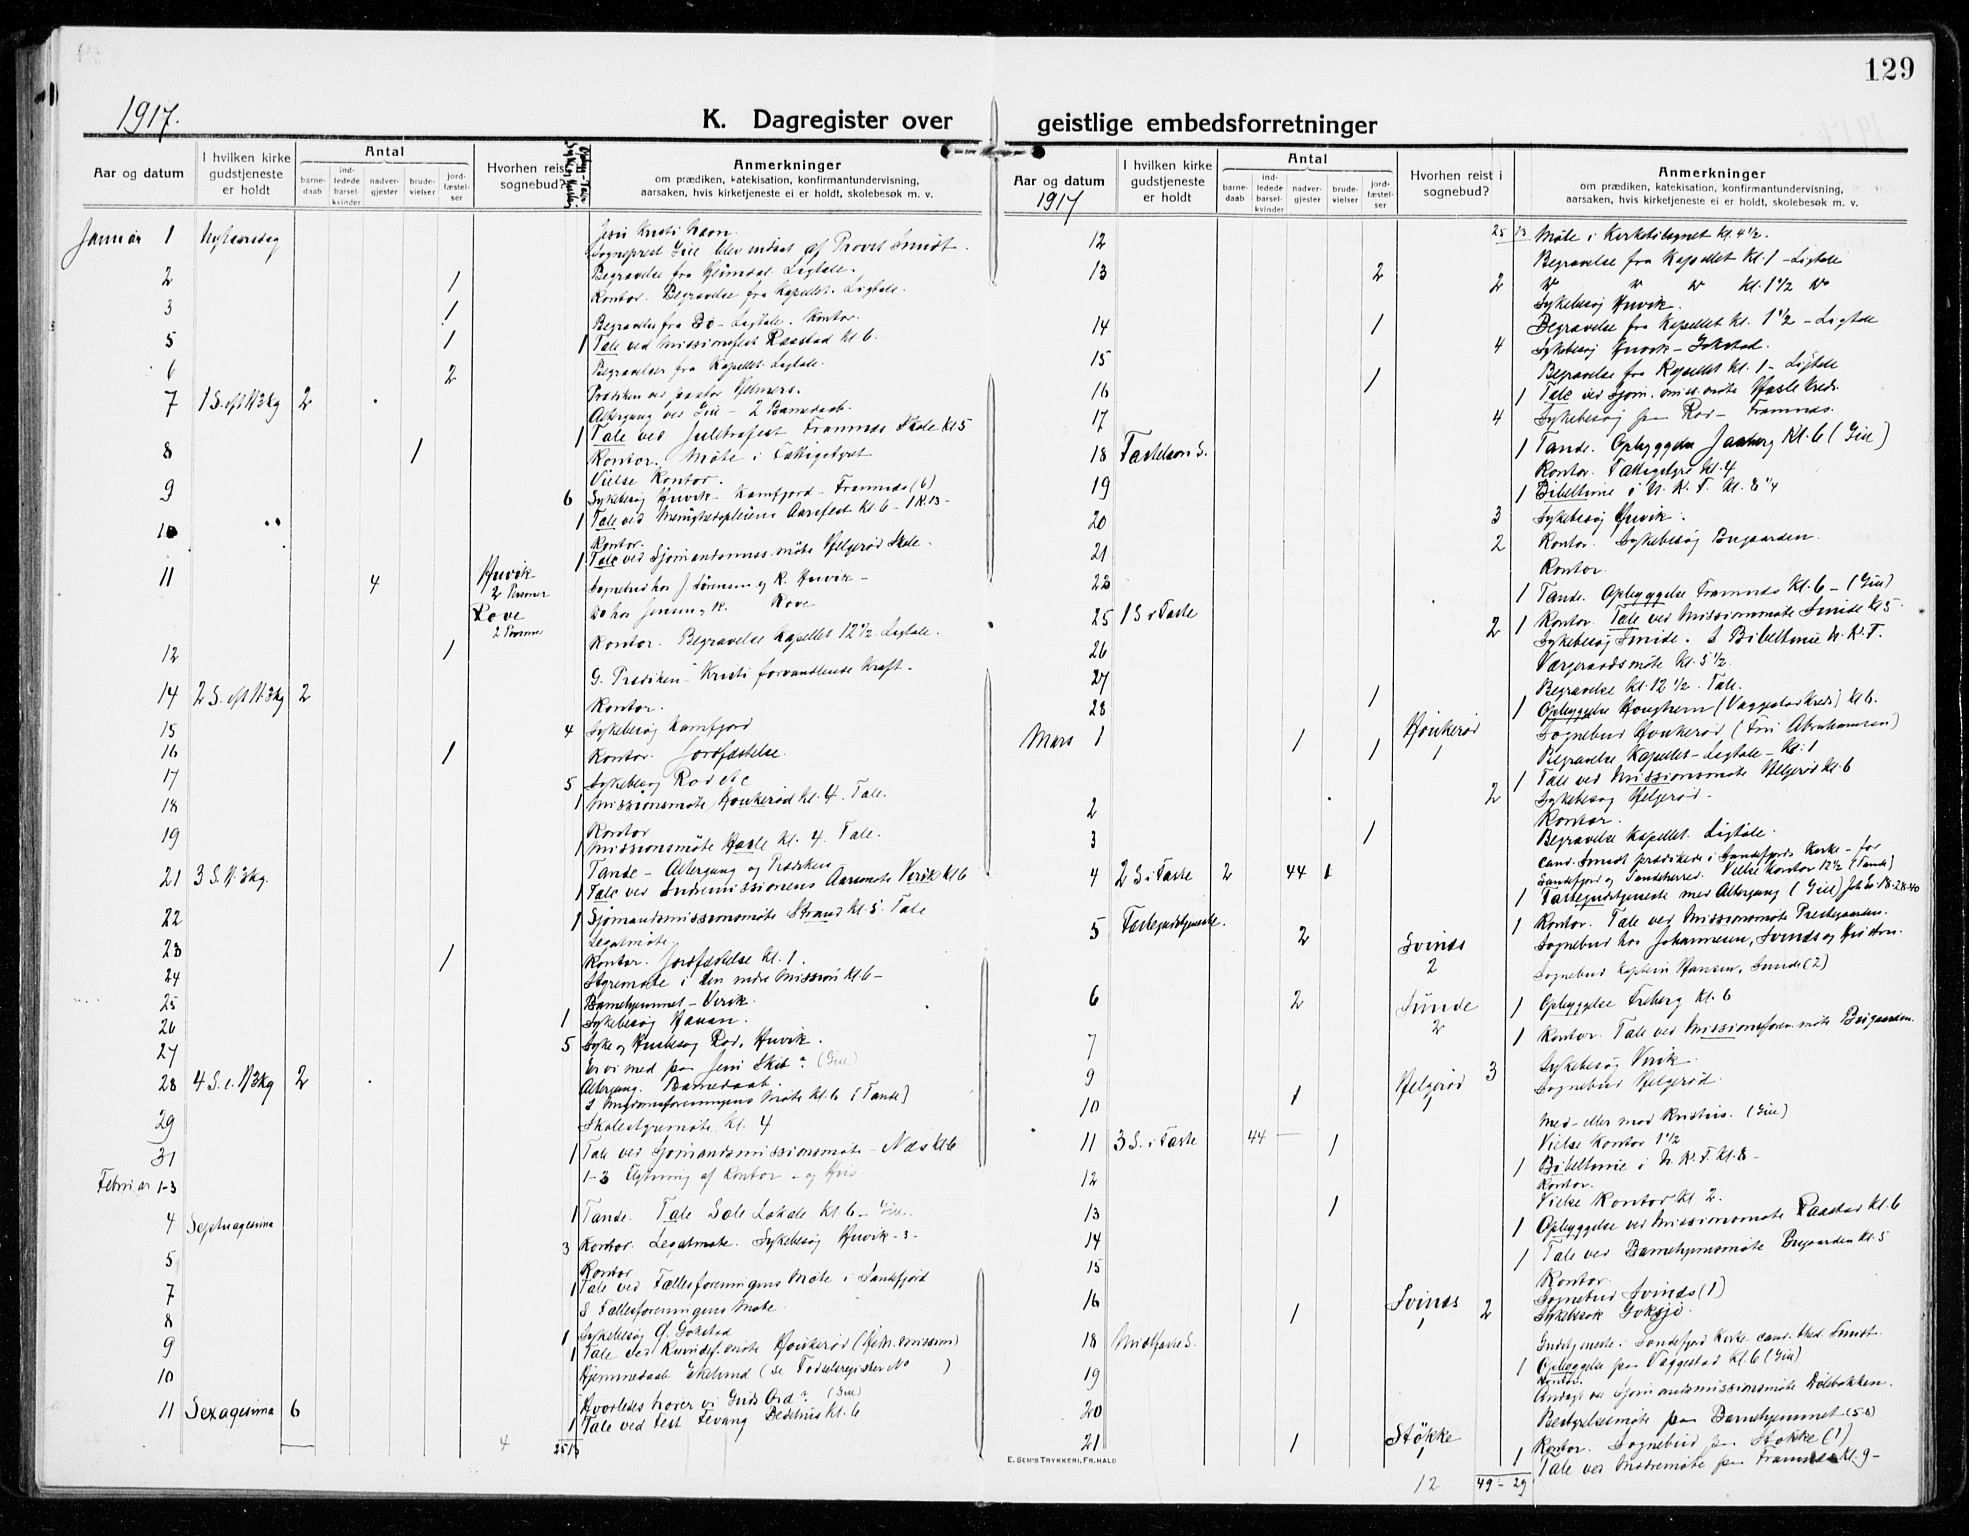 129
1917.
K. Dagregister over geistlige embedsforretninger
Aar og datum
I hvilken kirke gudstjeneste er holdt
Antal
barne-daab
ind-ledede barsel-kvinder
nadver-gjester
brude-vielser
jord-fæstel-ser
Hvorhen reist i sognebud?
Anmerkninger
om prædiken, katekisation, konfirmantundervisning,
aarsaken, hvis kirketjeneste ei er holdt, skolebesøk m. v.
Januar 1 Nytaarsdag Jesu Kristi Navn.
Sogneprest Giil blev indsat af Provst Smidt.
2 1 Begravelse fra Heimdal Ligtale.
Kontor. Begravelse fra Kapellet. Ligtale.
3 1
Begravelse fra Bø - Ligtale. Kontor.
5 1 1 Tale ved Missionsfest Raastad kl 6.
6 2 Begravelser fra Kapellet. Ligtale.
7 1 S. eft H3kg 2 Prædiken ved pastor Helmers.
Altergang ved Giil - 2 Barnedaab.
1 Tale ved Juletræfest Framnæs Skole kl 5
8 1 Kontor. Møte i Fattigstyret
Vielse Kontor.
9 6 Sykebesøg Huvik - Kamfjord - Framnæs (6)
1 Tale ved Menighedspleiens Aarsfest kl 6
10 Kontor.
1 Tale ved Sjømandsmiss. møte Helgerød Skole.
11 4 Huvik 2 Personer Sognebud hos J. Sørensen og K. Huvik -
Rove 2 Personer Do hos Jensen og K. Rove
12 1 Kontor. Begravelse Kapellet 12 1/2 Ligtale.
14 2 S. eft H3kg 2 G. Prædiken - Kristi forvandlende Kraft.
15 Kontor.
16 1 4 Sykebesøg Kamfjord
Kontor. Jordfæstelse.
17 5 Sykebesøg Rød etc
18 1 Missionsmøte Haukerød kl. 4. Tale.
Kontor
19 1 Missionsmøte Hasle kl. 4. Tale.
21 3 S. H3kg. Tande - Altergang og Prædiken
1 Tale ved Indremissionens Aarsmøte Virik kl 6
22 1 Sjømandsmissionsmøte Strand kl. 5. Tale
Legatmøte.
23 1 Kontor. Jordfæstelse kl. 1.
24 Styremøte i den indre Mission kl 6 -
25 Barnehjemmet - Virik.
26 1 Sykebesøg Hauan.
27 5 Syke og Husbesøg Rød, Huvik.
28 4 S. e. H3kg 2 Er vi med paa Jesu Skib? (Giil)
Altergang. Barnedaab.
I Ungdomsforeningens Møte kl. 6 (Tande)
29 Skolestyremøte kl. 4
31 1 Tale ved Sjømandsmissionsmøte - Næs kl 6
Februar 1-3 1-3 Flytning af Kontor - og Hus
4 Septuagesima 1 Tande. Tale Sole Lokale kl 6 - Giil.
5 3 Kontor. Legatmøte. Sykebesøg Huvik - 3 -
Kontor
7 1 Tale ved Fællesforeningens Møte i Sandefjord
8 I Fællesforeningens Møte.
9 1 Sykebesøg Ø. Gokstad
1 Tale ved Kvindef. møte Haukerød
10 Hjemmedaab Ekelund (se Fødselsregister No )
11 Sexagesima 6 Hvorledes hører vi Guds Ord? (Giil)
1 Tale ved Fest Fevang Bedehus kl. 6
4 25 13
Aar og datum
1917
I hvilken kirke gudstjeneste er holdt
Antal
barne-daab
ind-ledede barsel-kvinder
nadver-gjester
brude-vielser
jord-fæstel-ser
Hvorhen reist i sognebud?
Anmerkninger
om prædiken, katekisation, konfirmantundervisning,
aarsaken, hvis kirketjeneste ei er holdt, skolebesøk m. v.
25 13
12 Møte i Kirketilsynet kl. 4 1/2.
13 2 Begravelse fra Kapellet kl. 1 - Ligtale
2 " " " kl. 1 1/2 Do
Sykebesøg Huvik.
14 1 Begravelse fra Kapellet kl. 1 1/2 - Ligtale
4 Sykebesøg Huvik - Gokstad.
15 1 Begravelse fra Kapellet kl. 1 - Ligtale
16 1 Tale ved Sjøm. miss. møte Hasle Kreds.
17 4 Sykebesøg paa Rød - Framnæs.
18 Fastelavn S. 1 Tande. Opbyggelse Jaaberg kl. 6 (Giil)
Kontor. Fattigstyre kl. 4
19 1 Bibeltime i N. K. F. kl. 8 1/4
20 3 Sykebesøg Huvik.
21 2 Kontor. Sykebesøg Bugaarden.
Kontor.
23 1 Tande. Opbyggelse Framnæs kl. 6 - (Giil)
25 1 S i Faste 2 1 Kontor. Tale ved Missionsmøte Sunde kl 5.
26 Sykebesøg Sunde. I Bibeltime N. K. F.
Værgeraadsmøte kl. 5 1/2.
27 1 Begravelse kl. 12 1/2. Tale.
28 1 Opbyggelse Haughem (Vaggestad Kreds) kl 6.
Mars 1 1 1 Haukerød 1 Sognebud Haukerød (Fru Abrahamsen)
Begravelse Kapellet - Ligtale - kl. 1
1 Tale ved Missionsmøte Helgerød kl. 6
2 2 Sykebesøg Helgerød -
Kontor.
3 1 Begravelse Kapellet. Ligtale.
4 2 S. i Faste 2 44 1 Cand. Smidt prædikede i Sandefjords Kirke - for
Sandefjord og Sandeherred. Vielse Kontor 12 1/2 (Tande)
1 Fastegudstjeneste med Altergang (Giil)
5 Fastegudstjeneste. 1 Kontor. Tale ved Missionsmøte Prestegaarden.
2 Svinæs 2 Sognebud hos Johannesen, Svinæs og
Sognebud Kaptein Hansen, Sunde (2)
6 2 Sunde 2 1 Opbyggelse Freberg kl. 6
1 Kontor. Tale ved Missionsforen. møte Bugaarden.
7 3 Sykebesøg Virik.
9 1 Helgerød 1 Sognebud Helgerød.
10
11 3 S. i Faste 44 1 Med - eller mod Kristus. (Giil)
Vielse Kontor 1 1/2
12 1 Bibeltime i N. K. F. kl. 8 -
Kontor.
13 1 Vielse Kontor kl 2.
14 1 Opbyggelse ved Missionsmøte Raastad kl. 6
15 1 Tale ved Barnehjemsmøte Bugaarden kl. 5
Kontor.
16 1 Svinæs 1 2 Sognebud Svinæs (1)
Sykebesøk Goksjø.
18 Midfaste S. Gudstjeneste i Sandefjord Kirke cand. theol. Smidt.
1 Opbyggelse paa Vaggestad kl. 6 (Giil)
19 Kontor.
Andagt ved Sjømandsmissionsmøte Dølebakken.
20 Bestyrelsesmøte paa Barnehjemmet (5-8)
21 1 Stokke 1 Kontor. Sognebud paa Stokke (1)
1 Tale ved Mødremøte paa Framnæs kl. 9 -
E. SEM'S TRYKKERI, FR.HALD
12 49 - 29